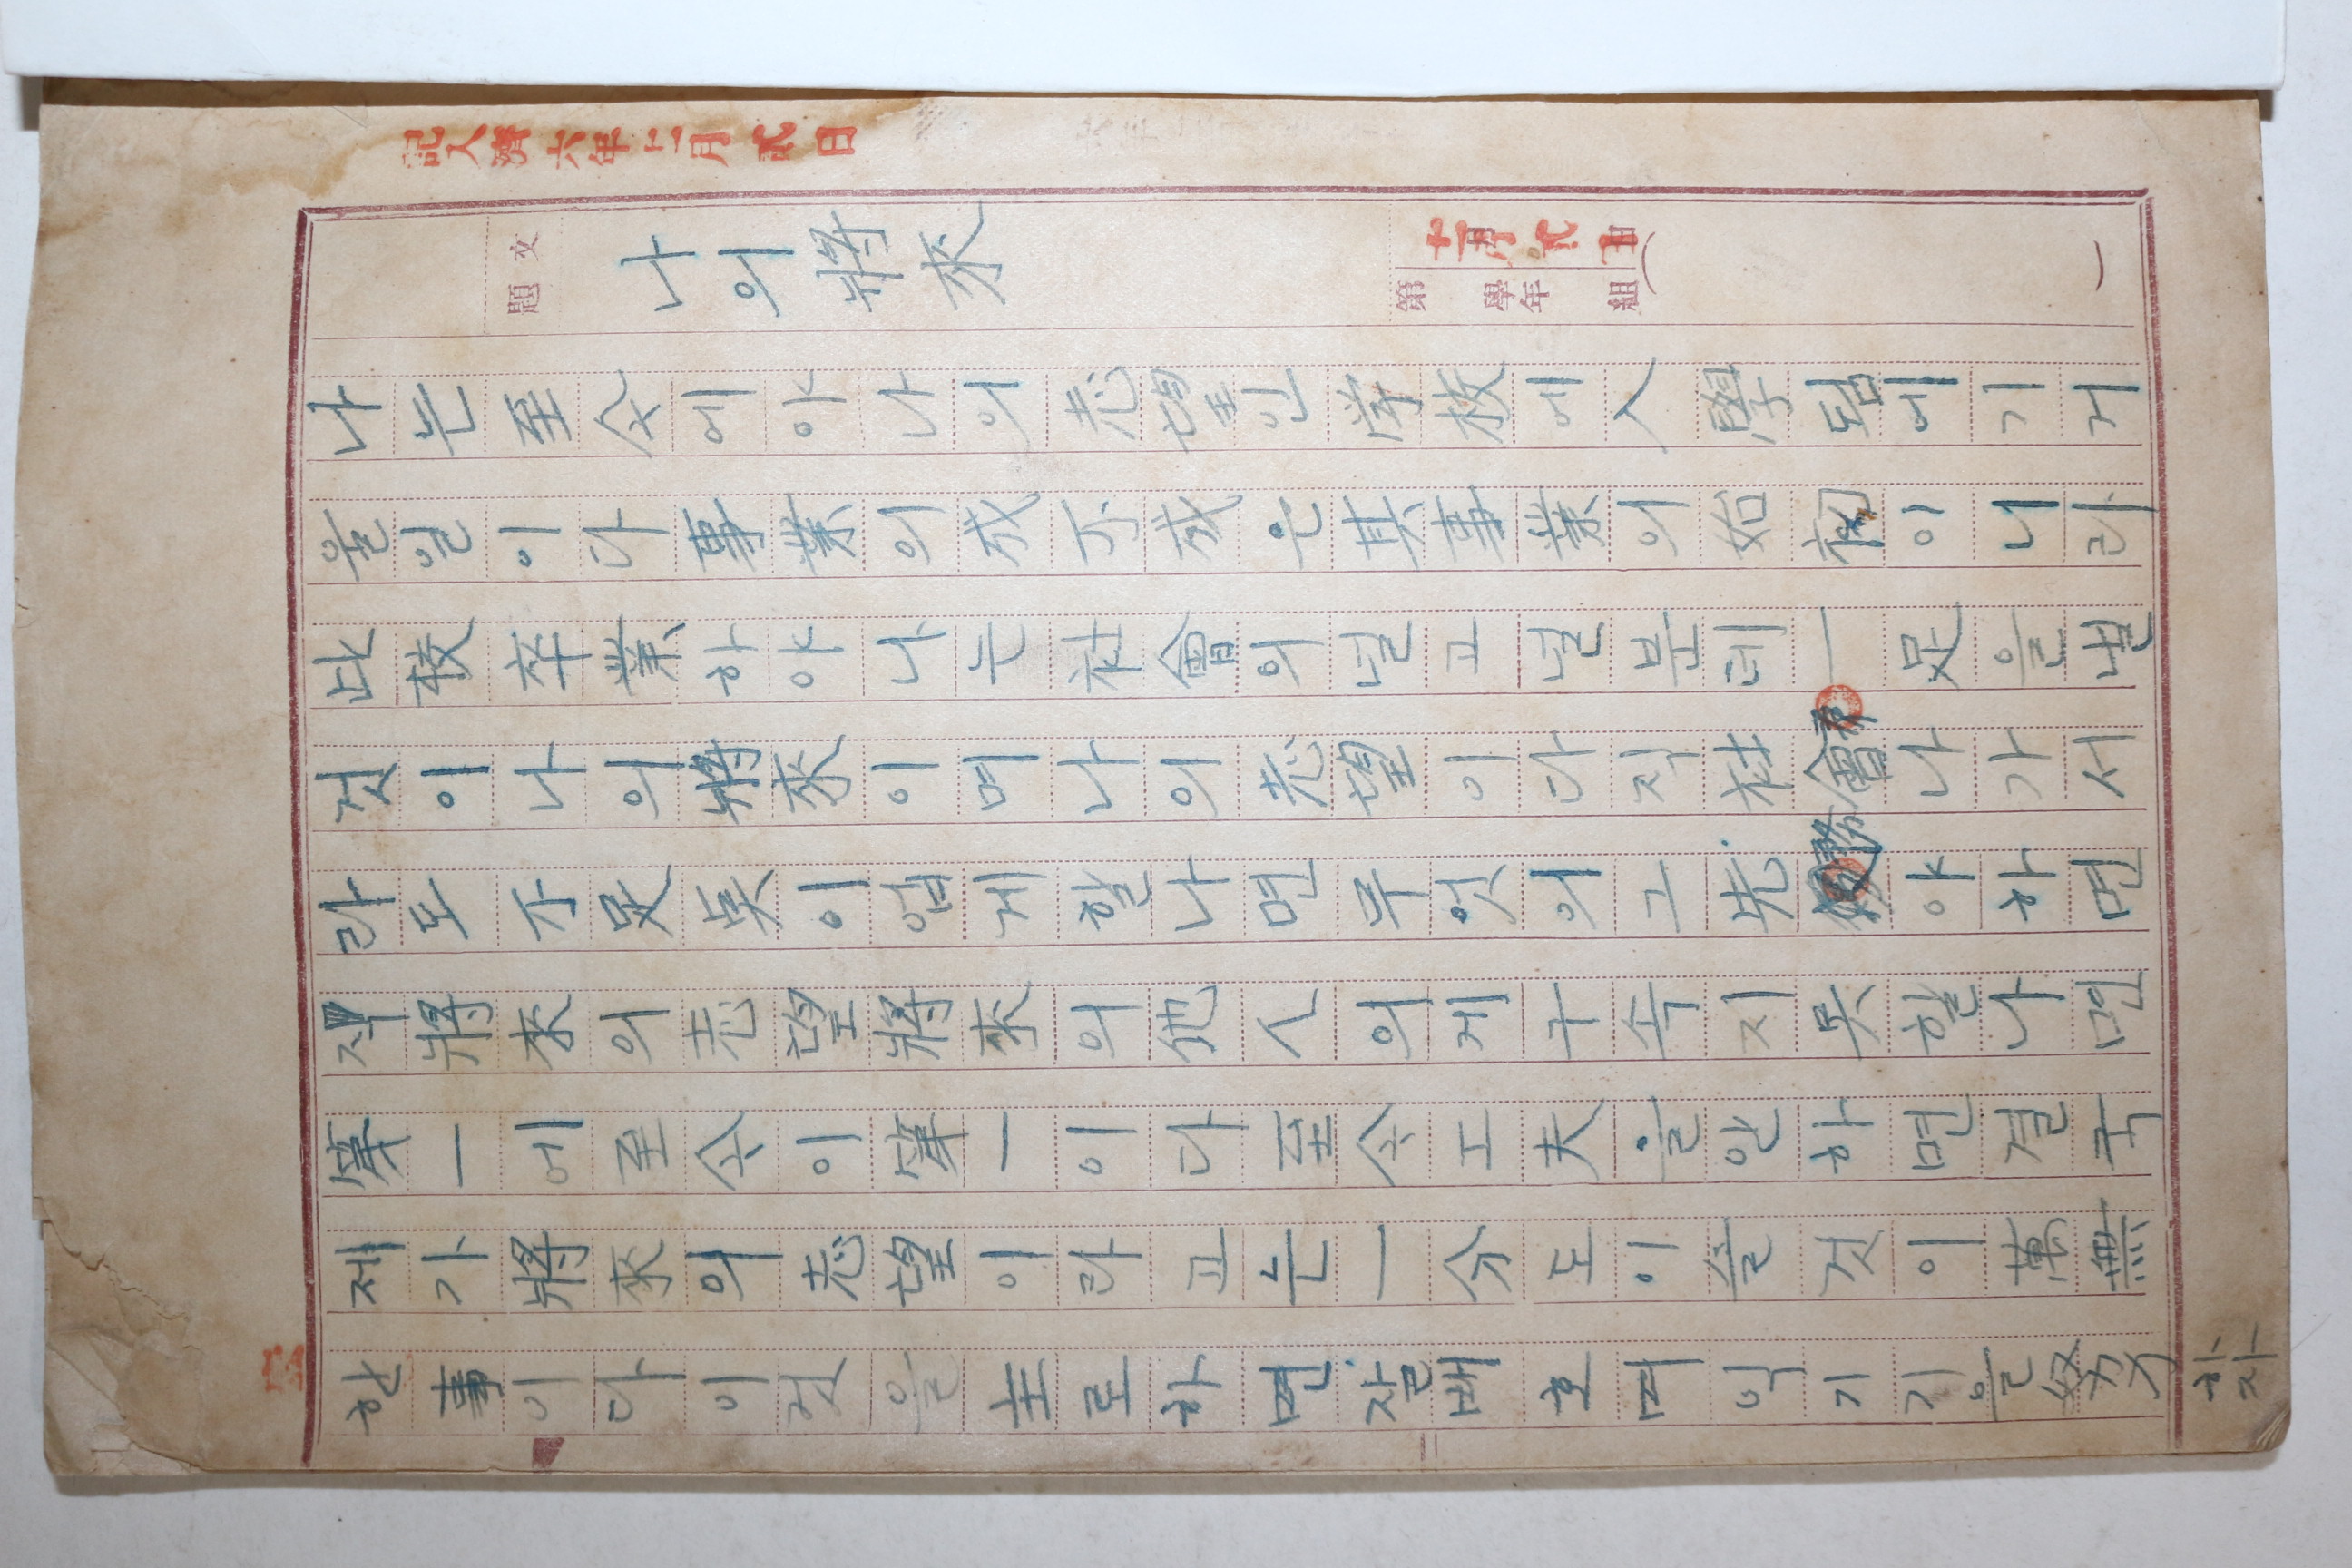 記入濟 六年十二月 弍日
文題 나의將來
第 學年 組
十二月弍日
(一)
나는至今에야나의志望인學校에入學되엿기거
울일이다事業의成不成은其事業의始初이니라
此校卒業하야나는社會의널고널분데一足을낼
것이나의將來이며나의志望이다직社會나가서
라도不足点이업게할나면무엇의고先 야하면
將來의志望將來의他人의게구속지못할나면
第一에至今이第一이다至今工夫을안하면결국
제가將來의志望이라고는一分도이술것이萬無
한事이다이것을主로하면잘배호며익기기을努力
하자